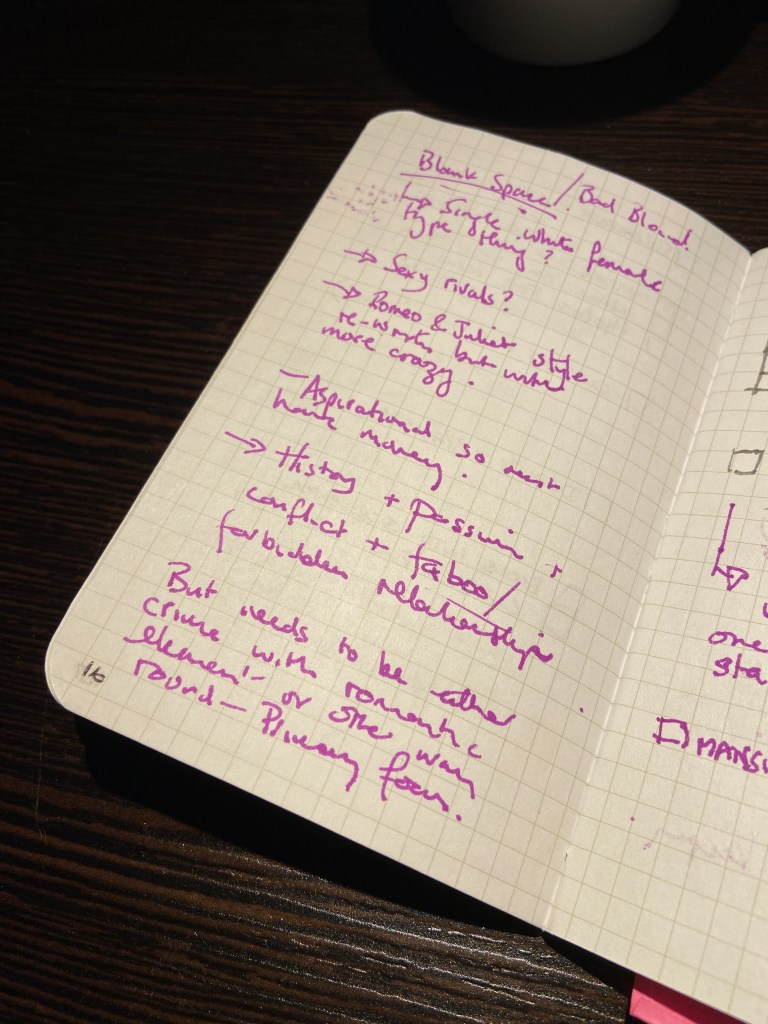 Blank Space / Bad Blood.
↳ Single white female
type thing?
→ Sexy rivals?
→ Romeo & Juliet style
re-work but with
more crazy.
– Aspirational so must
have money.
→ History + Passion +
conflict + taboo/
forbidden relationships
But needs to be either
crime with romantic
element or other way
round – Primary focus.
16
one
sta
MANS